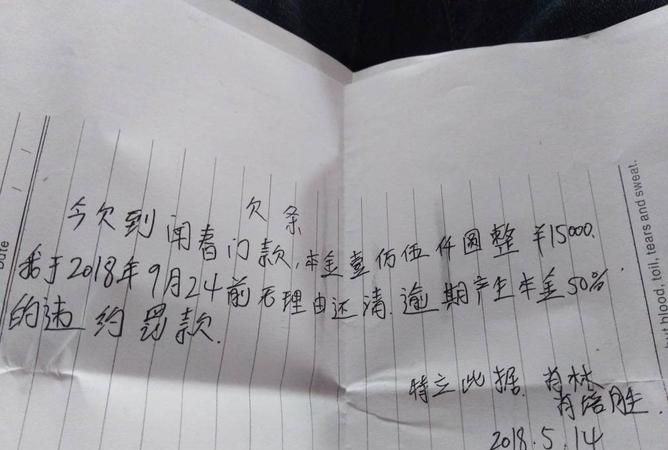 欠条
今欠到闻春门款，本金壹佰伍仟圆整 ¥15000.
我于2018年9月24前无理由还清.逾期产生本金50%
的违约罚款.
特立此据.肖林
肖培胜.
2018.5.14
but blood, toil, tears and sweat.
Date